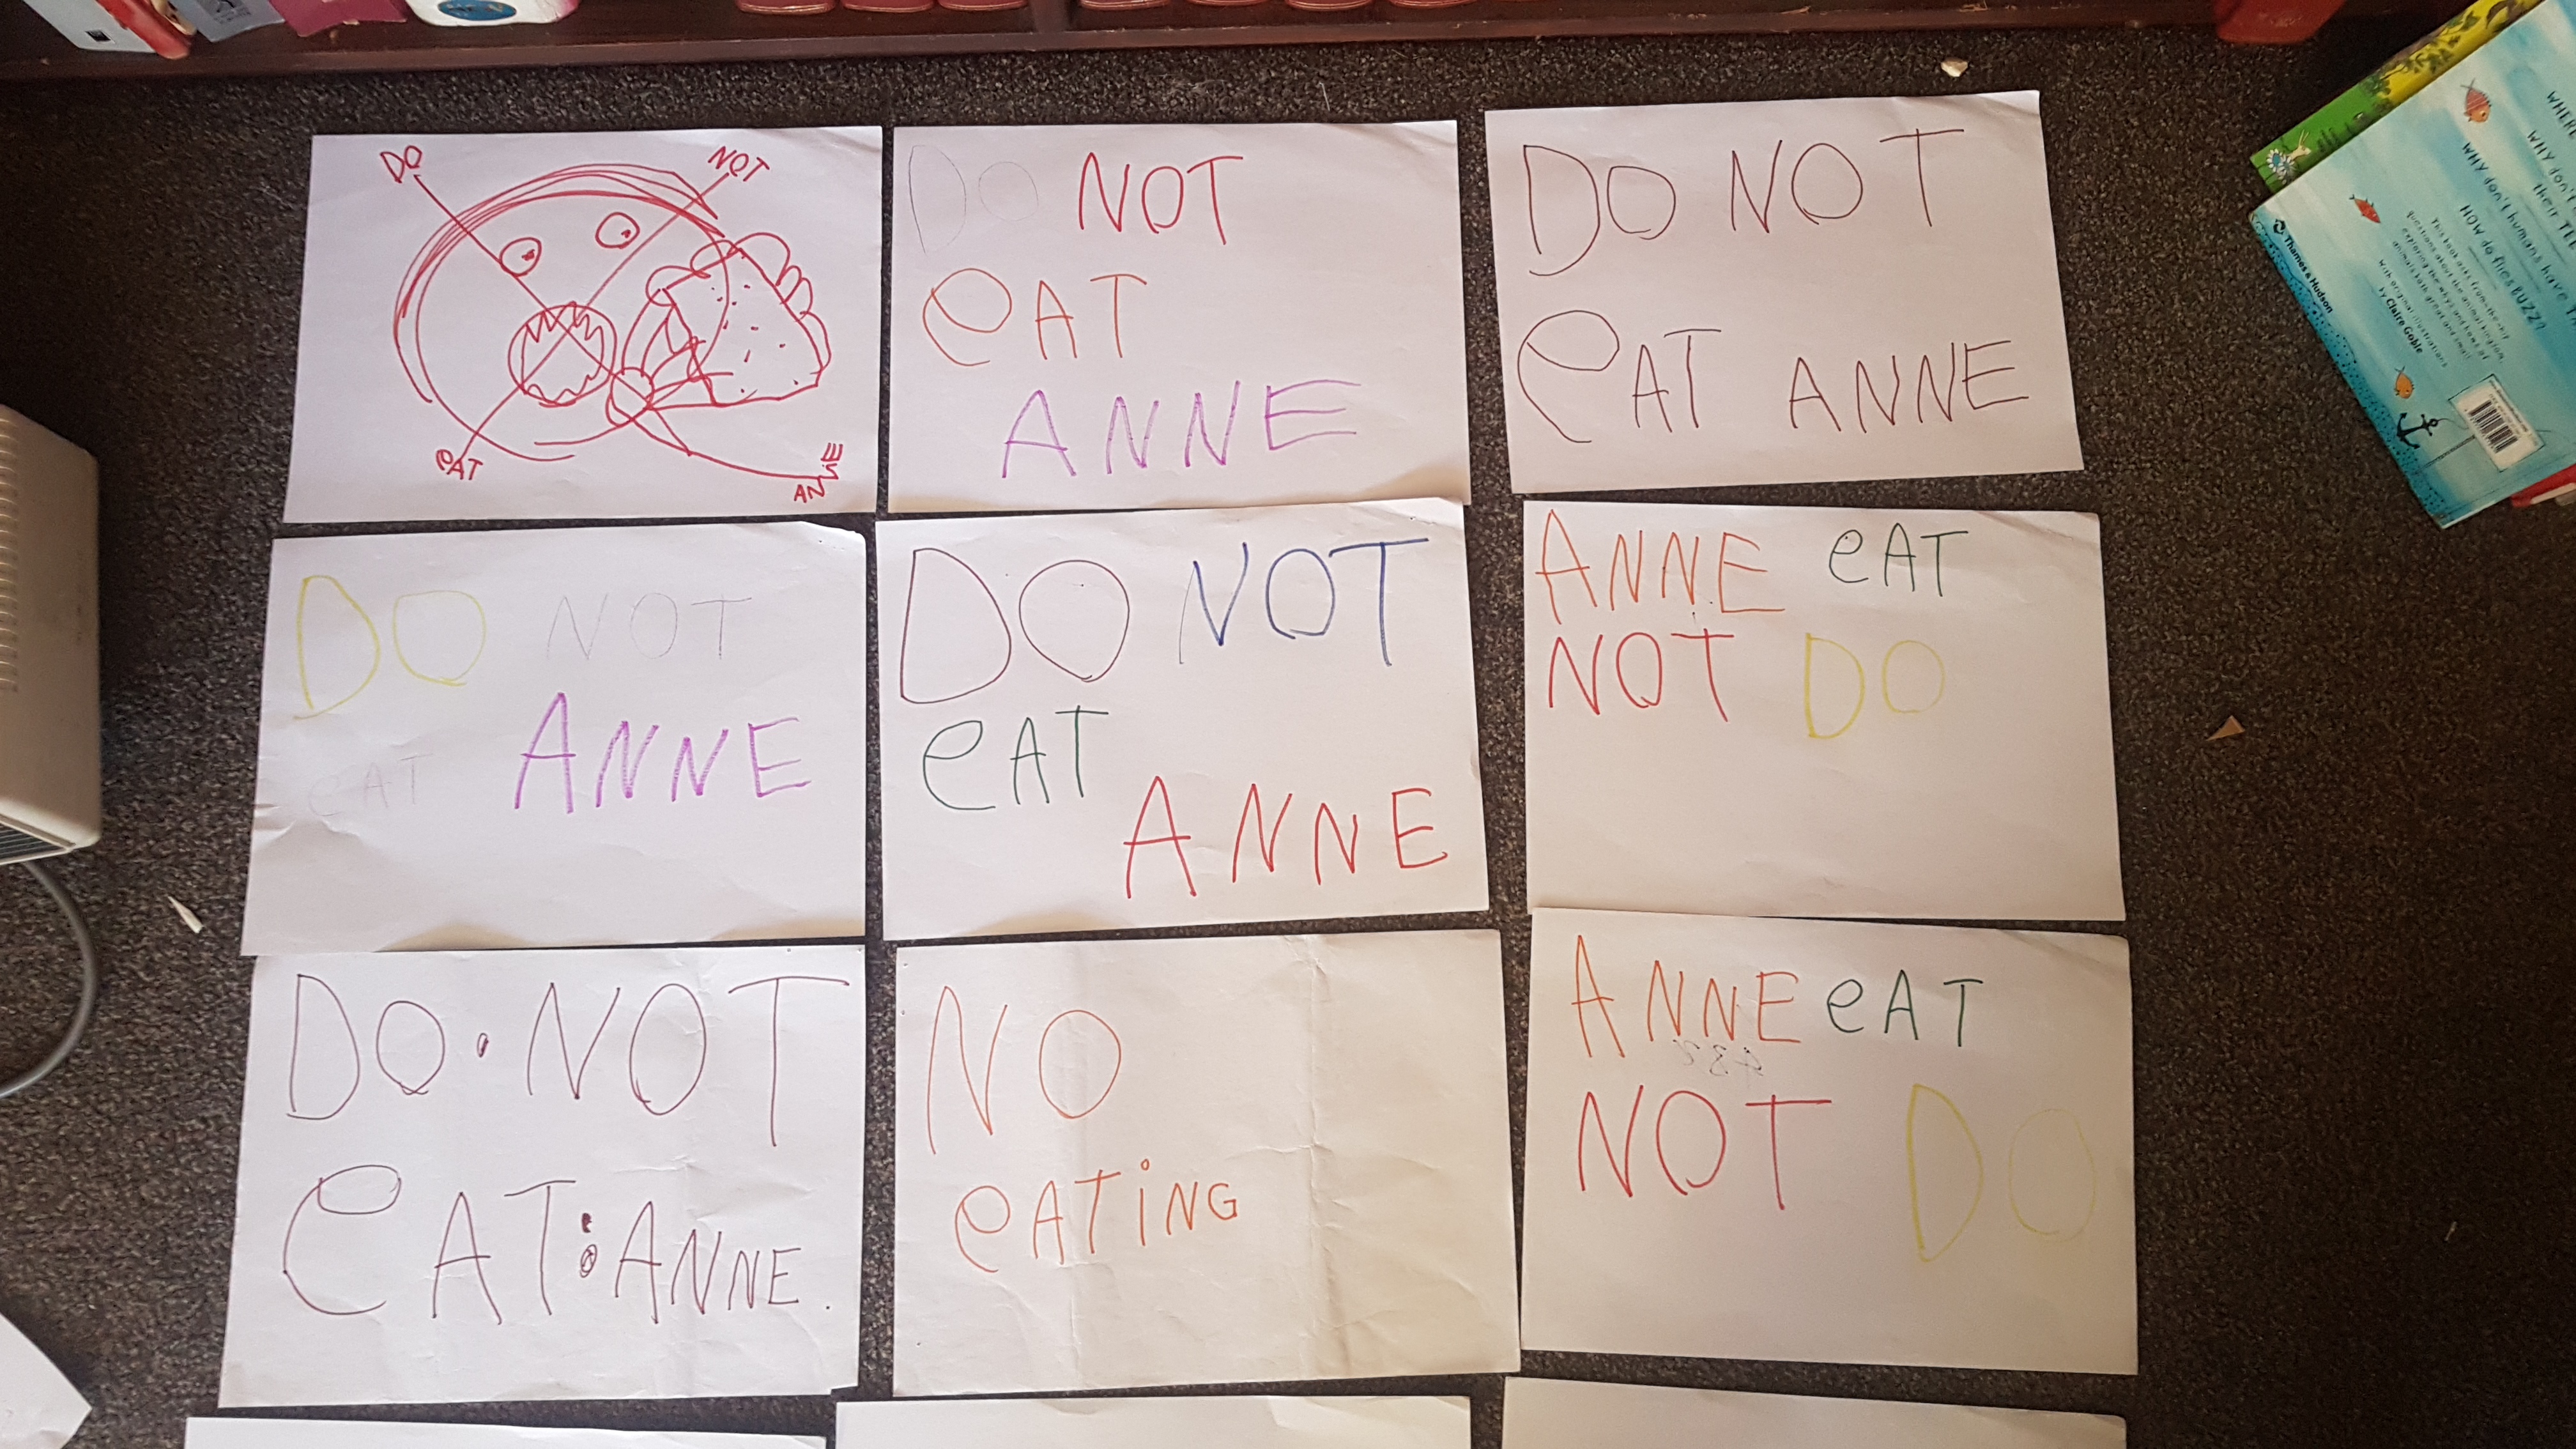 DO NOT
eAT ANNE
DO NOT
eAT
ANNE
DO NOT
eAT ANNE
DO NOT
eAT ANNE
DO NOT
eAT
ANNE
ANNE eAT
NOT DO
DO · NOT
eAT : ANNE .
NO
eATiNG
ANNE eAT
NOT DO
WHY don't
WHY don't humans have
HOW do flies BUZZ?
by Claire Goble
Thames & Hudson